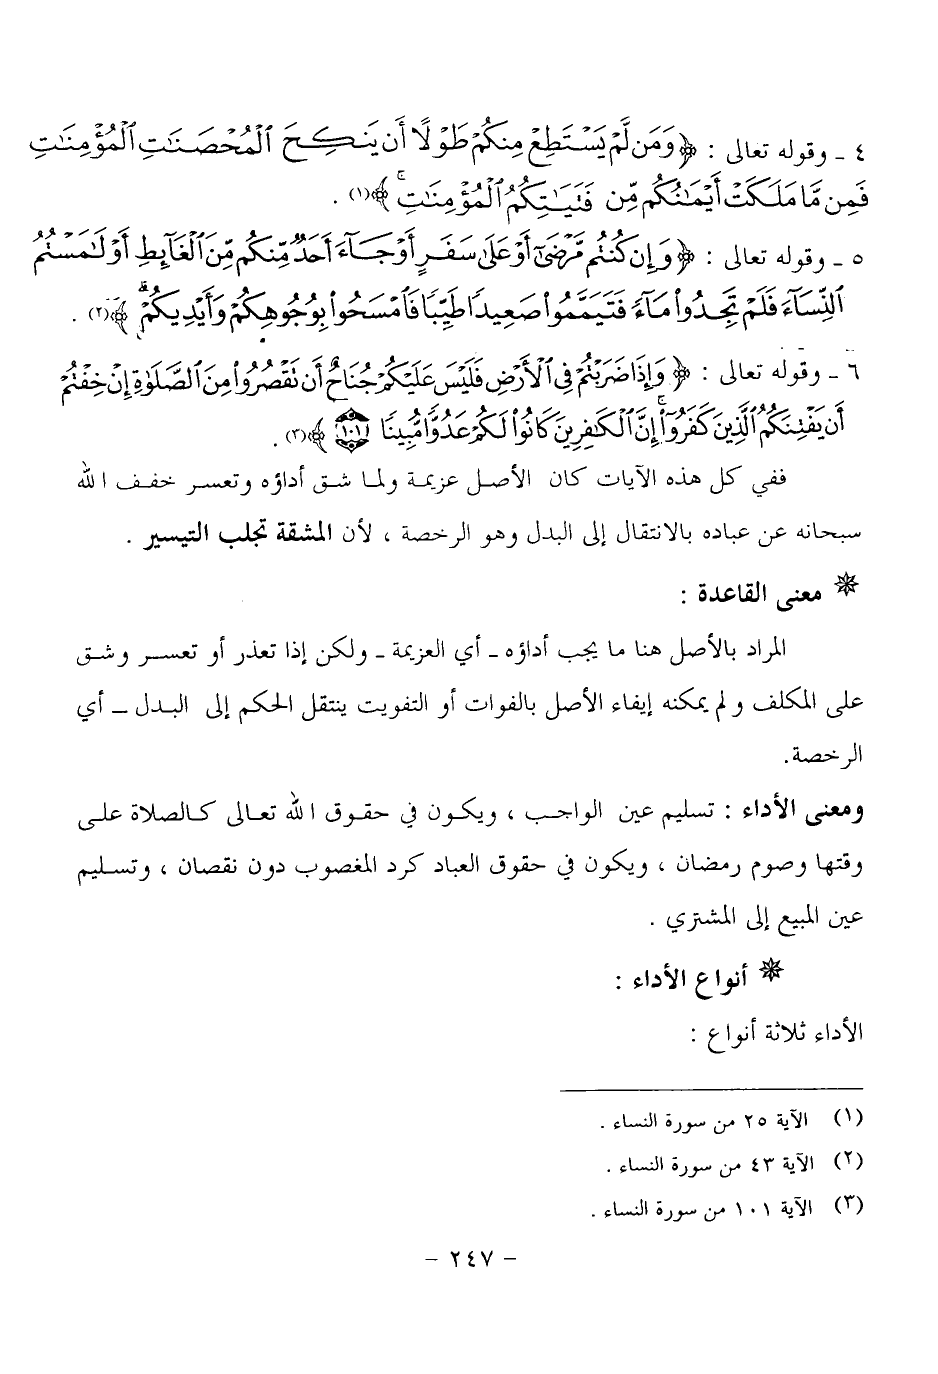 ٤ ـ وقوله تعالى : ﴿ وَمَن لَّمْ يَسْتَطِعْ مِنكُمْ طَوْلًا أَن يَنكِحَ الْمُحْصَنَاتِ الْمُؤْمِنَاتِ
فَمِن مَّا مَلَكَتْ أَيْمَانُكُم مِّن فَتَيَاتِكُمُ الْمُؤْمِنَاتِ ۚ ﴾(١) .
٥ ـ وقوله تعالى : ﴿ وَإِن كُنتُم مَّرْضَىٰ أَوْ عَلَىٰ سَفَرٍ أَوْ جَاءَ أَحَدٌ مِّنكُم مِّنَ الْغَائِطِ أَوْ لَامَسْتُمُ
النِّسَاءَ فَلَمْ تَجِدُوا مَاءً فَتَيَمَّمُوا صَعِيدًا طَيِّبًا فَامْسَحُوا بِوُجُوهِكُمْ وَأَيْدِيكُمْ ۗ ﴾(٢) .
٦ ـ وقوله تعالى : ﴿ وَإِذَا ضَرَبْتُمْ فِي الْأَرْضِ فَلَيْسَ عَلَيْكُمْ جُنَاحٌ أَن تَقْصُرُوا مِنَ الصَّلَوٰةِ إِنْ خِفْتُمْ
أَن يَفْتِنَكُمُ الَّذِينَ كَفَرُوا ۚ إِنَّ الْكَافِرِينَ كَانُوا لَكُمْ عَدُوًّا مُّبِينًا ١٠١ ﴾(٣) .
ففي كل هذه الآيات كان الأصل عزيمة ولما شق أداؤه وتعسر خفف الله
سبحانه عن عباده بالانتقال إلى البدل وهو الرخصة ، لأن المشقة تجلب التيسير .
❋ معنى القاعدة :
المراد بالأصل هنا ما يجب أداؤه ـ أي العزيمة ـ ولكن إذا تعذر أو تعسر وشق
على المكلف ولم يمكنه إيفاء الأصل بالفوات أو التفويت ينتقل الحكم إلى البدل ــ أي
الرخصة.
ومعنى الأداء : تسليم عين الواجب ، ويكون في حقوق الله تعالى كالصلاة على
وقتها وصوم رمضان ، ويكون في حقوق العباد كرد المغصوب دون نقصان ، وتسليم
عين المبيع إلى المشتري .
❋ أنواع الأداء :
الأداء ثلاثة أنواع :
(١) الآية ٢٥ من سورة النساء .
(٢) الآية ٤٣ من سورة النساء .
(٣) الآية ١٠١ من سورة النساء .
– ٢٤٧ –